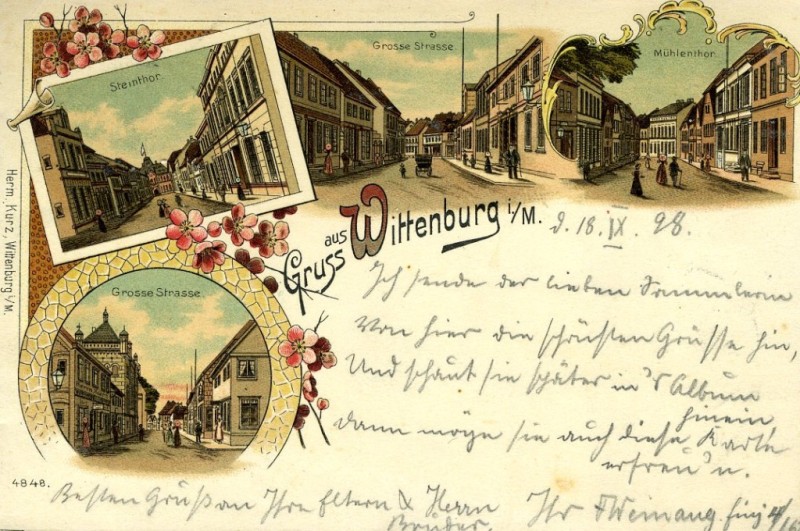 Steinthor.
Grosse Strasse.
Mühlenthor.
Gruss aus Wittenburg i/M.
d. 18. IX. 98.
Herm. Kurz, Wittenburg i/M.
Grosse Strasse.
Ich sende der lieben Sammlerin
Von hier die schönsten Grüsse hin,
Und schaut sie später in's Album
hinein,
dann möge sie auch diese Karte
erfreu'n.
4848.
Besten Gruß an Ihre Eltern & Herrn
Bruder.
Ihr